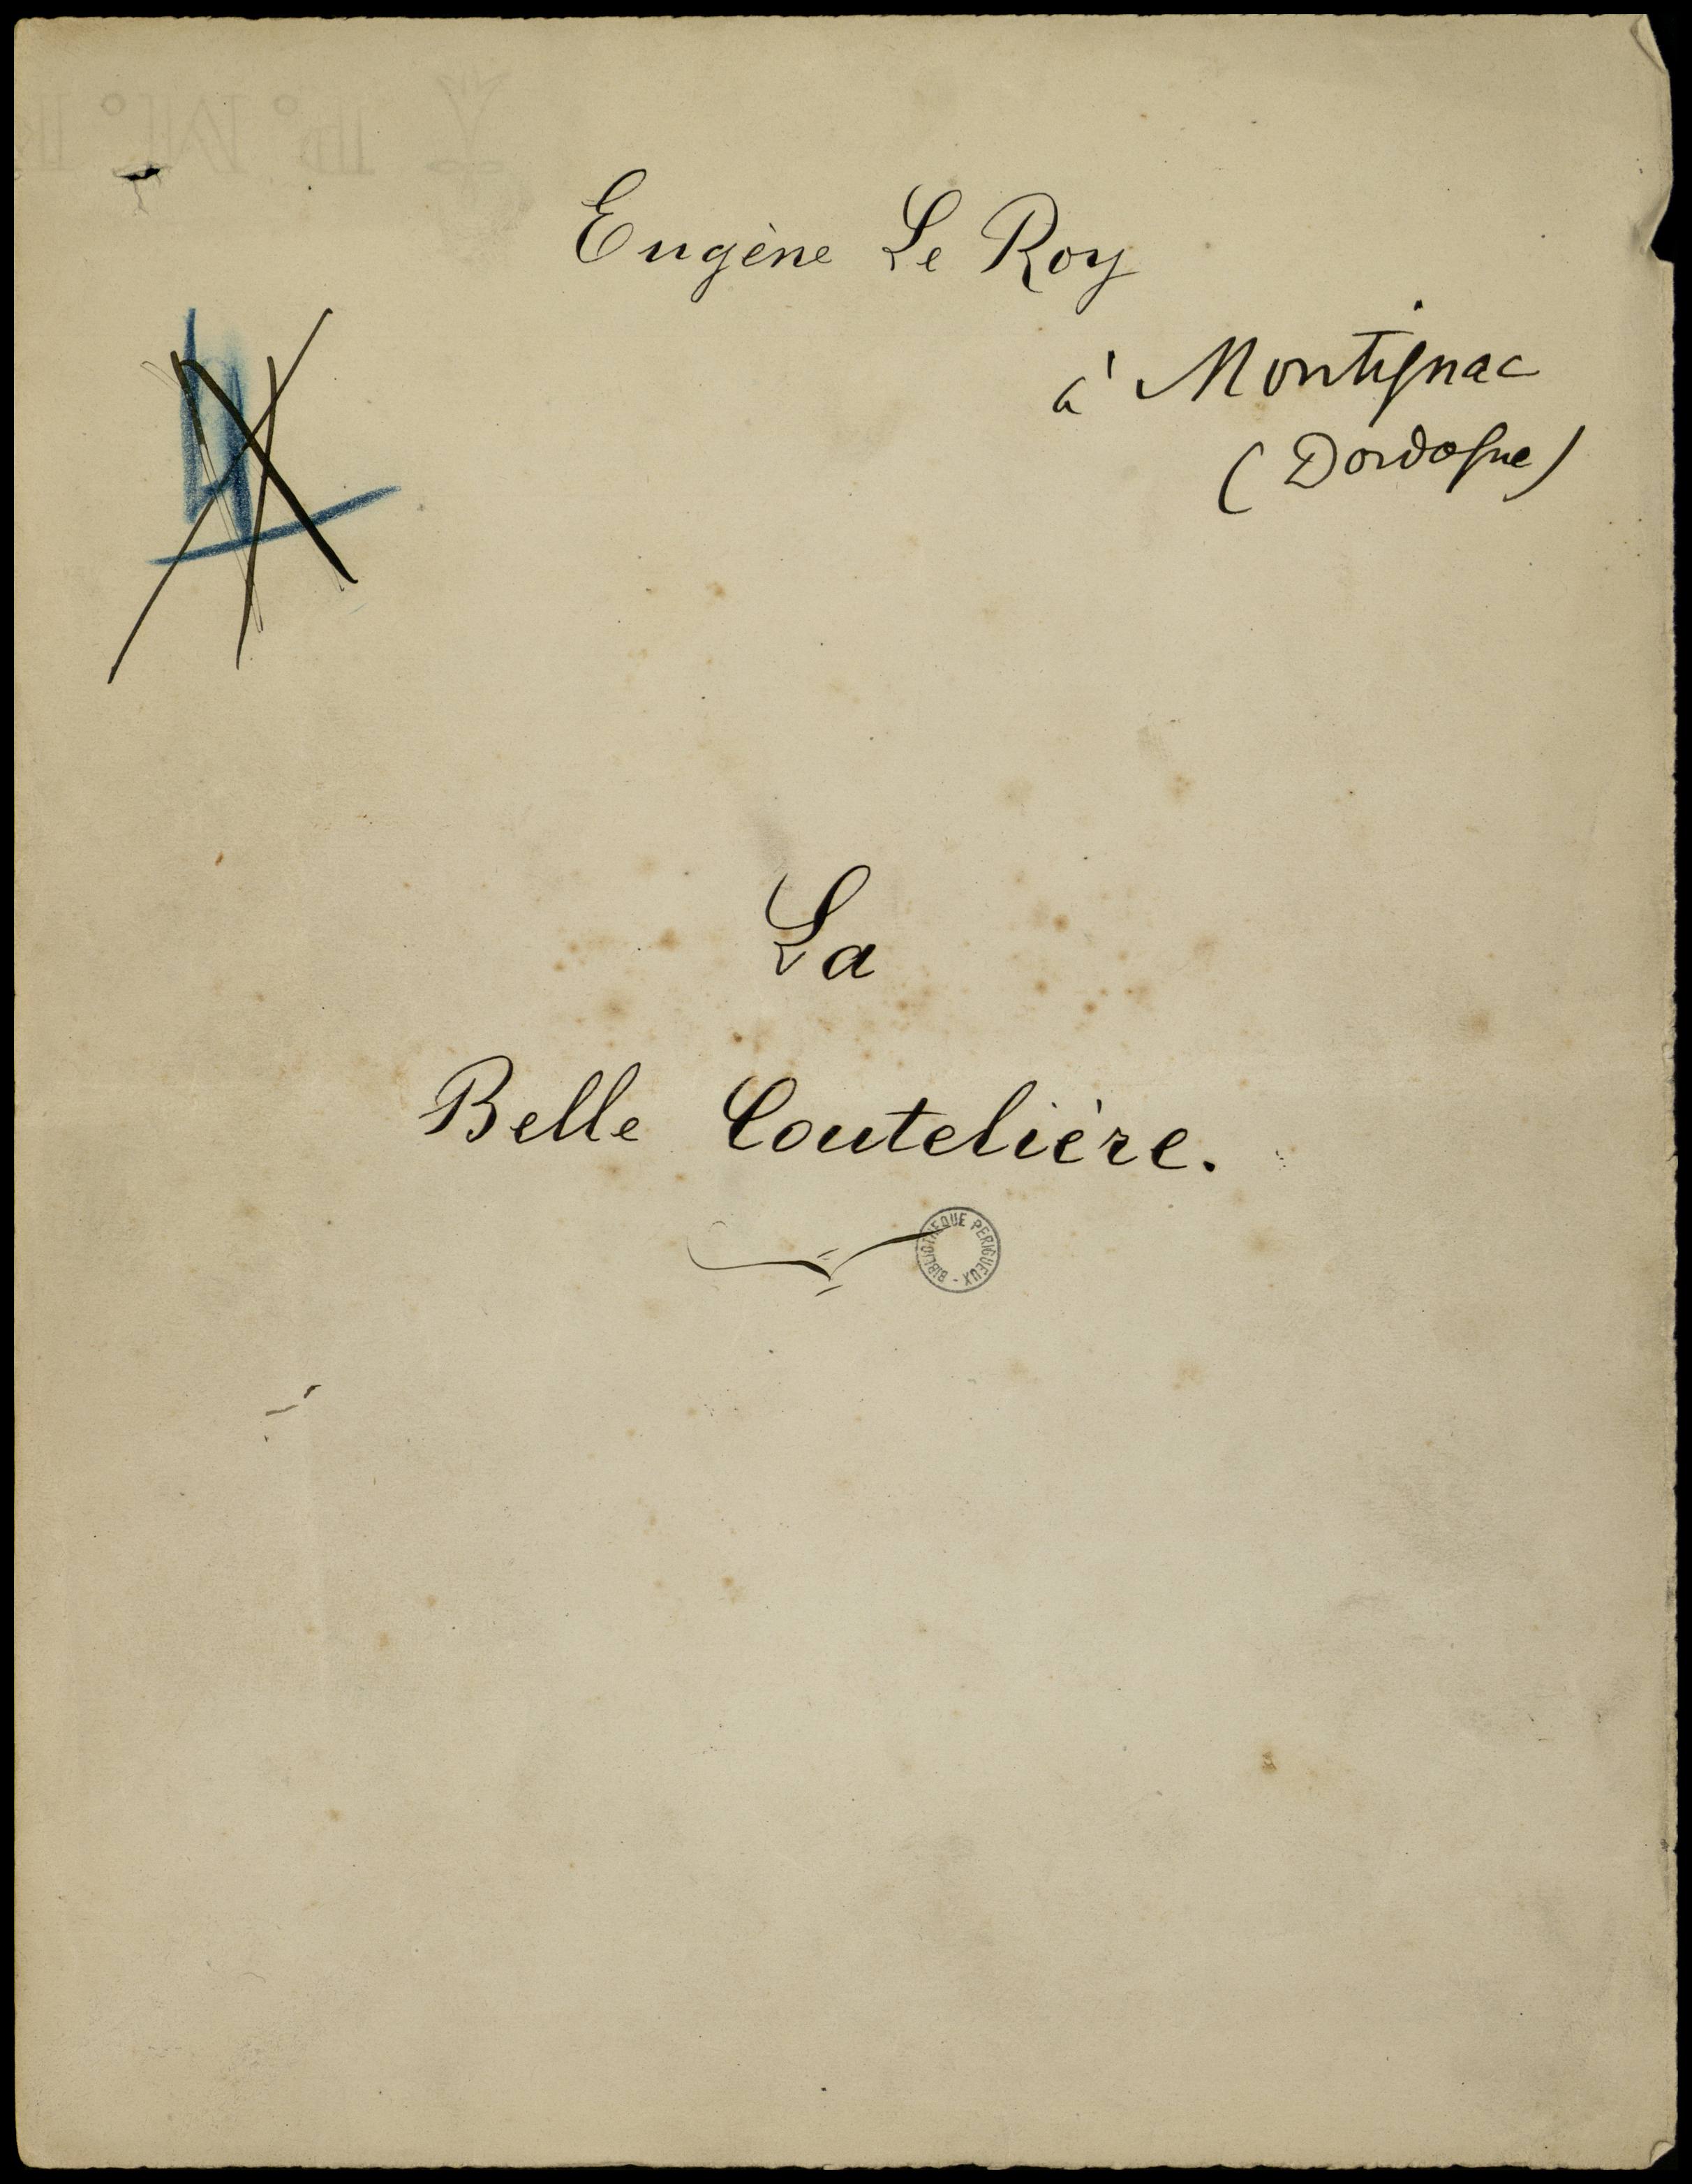 Eugène Le Roy
à Montignac
(Dordogne)
La
Belle Coutelière.
BIBLIOTHEQUE PERIGUEUX -